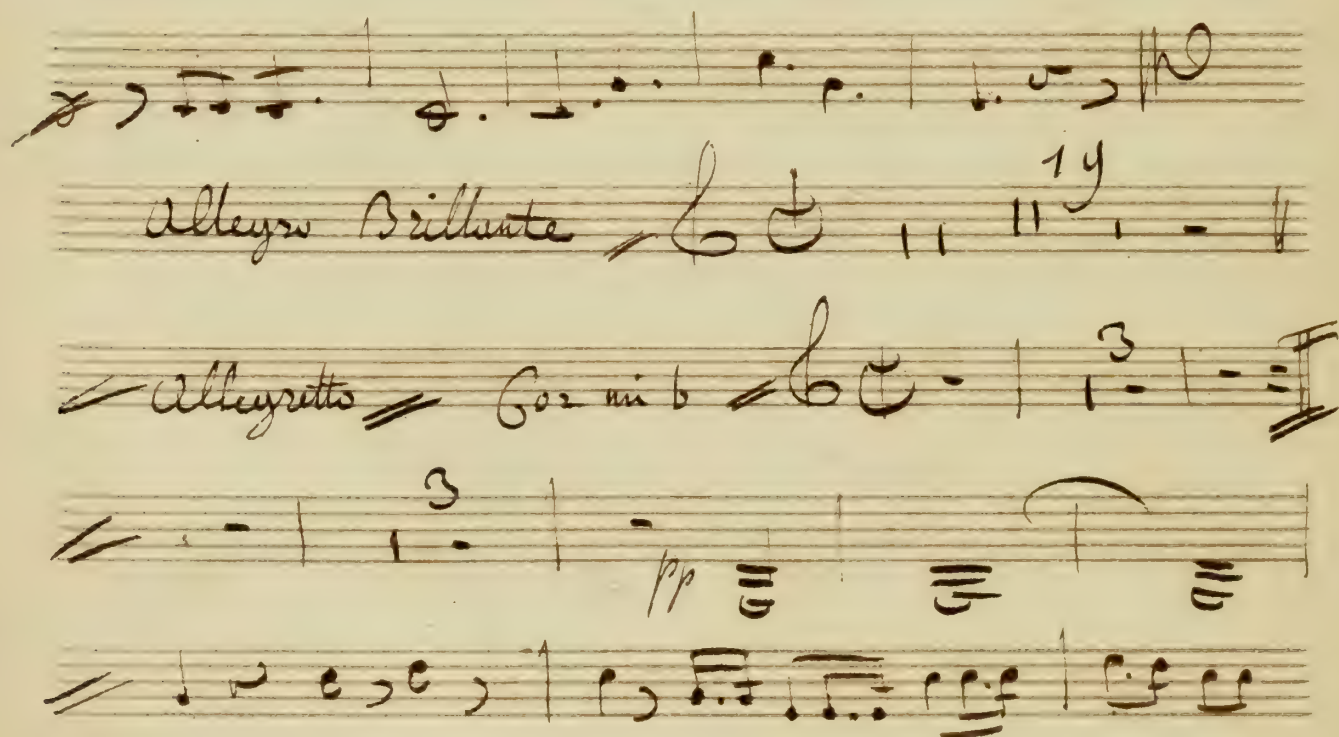 19
Allegro Brillante
3
Allegretto Cor mi b
3
pp